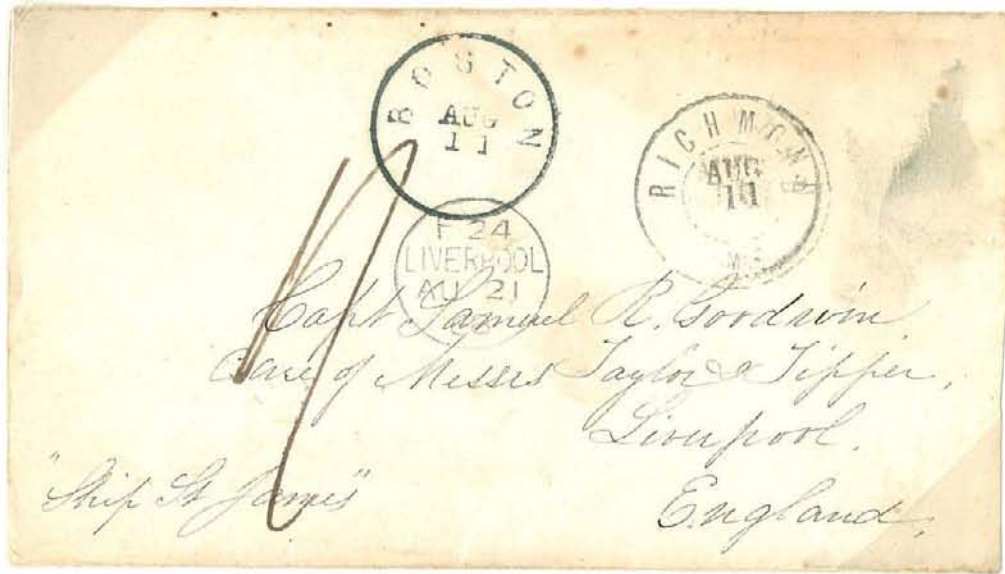 BOSTON
AUG
11
RICHMOND
AUG
11
ME
F 24
LIVERPOOL
AU 21
Capt Samuel R. Goodwin
Care of Messrs Taylor & Tipper,
Liverpool.
England,
"Ship St James"